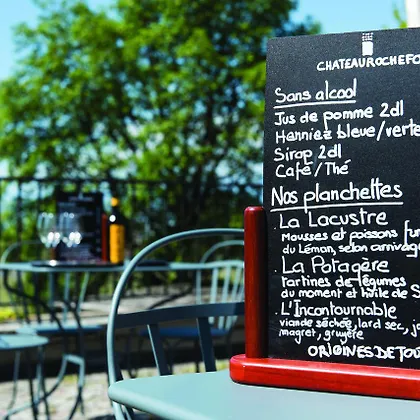 CHATEAUROCHEFO
Sans alcool
Jus de pomme 2dl
Henniez bleue/verte
Sirop 2dl
Café/Thé
Nos planchettes
. La Lacustre
Mousses et poissons fum
du Léman, selon arrivage
. La Potagère
tartines de légumes
du moment et huile de S
. L'Incontournable
viande séchée, lard sec, ja
magret, gruyère
ORIGINES DE TOU